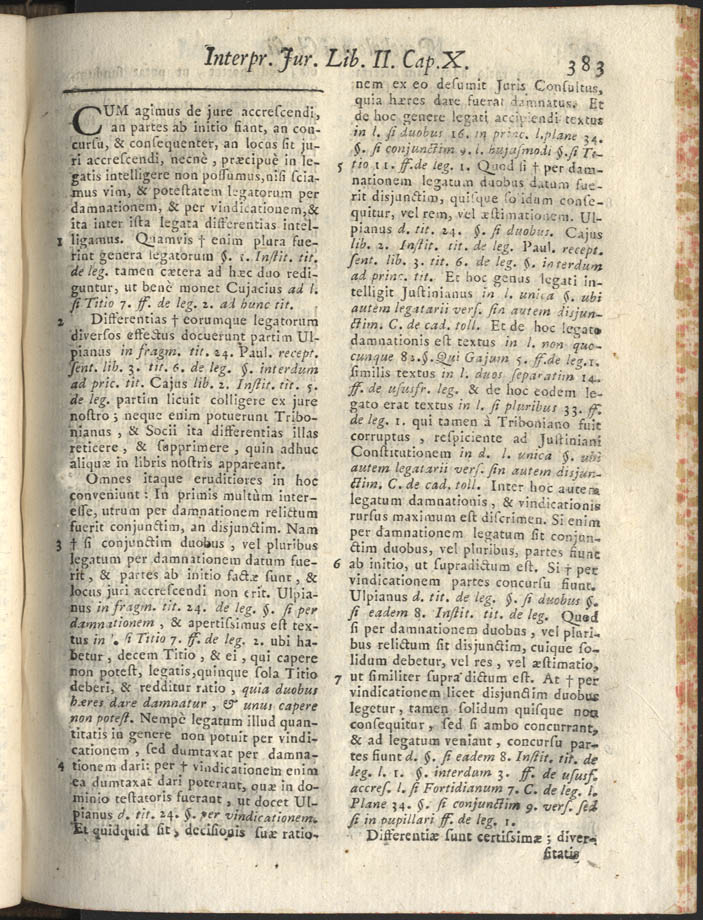 Interpr. Jur. Lib. II. Cap. X. 383
CUM agimus de jure accrescendi,
an partes ab initio fiant, an con-
cursu, & consequenter, an locus sit ju-
ri accrescendi, necnè, præcipuè in le-
gatis intelligere non possumus, nisi scia-
mus vim, & potestatem legatorum per
damnationem, & per vindicationem, &
ita inter ista legata differentias intel-
1 ligamus. Quamvis † enim plura fue-
rint genera legatorum §. 1. Instit. tit.
de leg. tamen cætera ad hæc duo redi-
guntur, ut benè monet Cujacius ad l.
si Titio 7. ff. de leg. 2. ad hunc tit.
2 Differentias † eorumque legatorum
diversos effectus docuerunt partim Ul-
pianus in fragm. tit. 24. Paul. recept.
sent. lib. 3. tit. 6. de leg. §. interdum
ad pric. tit. Cajus lib. 2. Instit. tit. 5.
de leg. partim licuit colligere ex jure
nostro; neque enim potuerunt Tribo-
nianus, & Socii ita differentias illas
reticere, & supprimere, quin adhuc
aliquæ in libris nostris appareant.
Omnes itaque eruditiores in hoc
conveniunt: In primis multùm inter-
esse, utrum per damnationem relictum
fuerit conjunctim, an disjunctim. Nam
3 † si conjunctim duobus, vel pluribus
legatum per damnationem datum fue-
rit, & partes ab initio factæ sunt, &
locus juri accrescendi non erit. Ulpia-
nus in fragm. tit. 24. de leg. §. si per
damnationem, & apertissimus est tex-
tus in l. si Titio 7. ff. de leg. 2. ubi ha-
betur, decem Titio, & ei, qui capere
non potest, legatis, quinque sola Titio
deberi, & redditur ratio, quia duobus
hæres dare damnatur, & unus capere
non potest. Nempè legatum illud quan-
titatis in genere non potuit per vindi-
cationem, sed dumtaxat per damna-
4 tionem dari: per † vindicationem enim
ea dumtaxat dari poterant, quæ in do-
minio testatoris fuerant, ut docet Ul-
pianus d. tit. 24. §. per vindicationem.
Et quidquid sit, decisionis suæ ratio-
nem ex eo desumit Juris Consultus,
quia hæres dare fuerat damnatus. Et
de hoc genere legati accipiendi textus
in l. si duobus 16. in princ. l. plane 34.
§. si conjunctim 9. l. hujusmodi §. si Ti-
5 tio 11. ff. de leg. 1. Quod si † per dam-
nationem legatum duobus datum fue-
rit disjunctim, quisque solidum conse-
quitur, vel rem, vel æstimationem. Ul-
pianus d. tit. 24. §. si duobus. Cajus
lib. 2. Instit. tit. de leg. Paul. recept.
sent. lib. 3. tit. 6. de leg. §. interdum
ad princ. tit. Et hoc genus legati in-
telligit Justinianus in l. unica §. ubi
autem legatarii vers. sin autem disjun-
ctim. C. de cad. toll. Et de hoc legato
damnationis est textus in l. non quo-
cunque 82. §. Qui Gajum 5. ff. de leg. 1.
similis textus in l. duos separatim 14.
ff. de ususfr. leg. & de hoc eodem le-
gato erat textus in l. si pluribus 33. ff.
de leg. 1. qui tamen à Triboniano fuit
corruptus, respiciente ad Justiniani
Constitutionem in d. l. unica §. ubi
autem legatarii vers. sin autem disjun-
ctim. C. de cad. toll. Inter hoc autem
legatum damnationis, & vindicationis
rursus maximum est discrimen. Si enim
per damnationem legatum sit conjun-
ctim duobus, vel pluribus, partes fiunt
6 ab initio, ut supradictum est. Si † per
vindicationem partes concursu fiunt.
Ulpianus d. tit. de leg. §. si duobus §.
si eadem 8. Instit. tit. de leg. Quod
si per damnationem duobus, vel pluri-
bus relictum sit disjunctim, cuique so-
lidum debetur, vel res, vel æstimatio,
7 ut similiter supra dictum est. At † per
vindicationem licet disjunctim duobus
legetur, tamen solidum quisque non
consequitur, sed si ambo concurrant,
& ad legatum veniant, concursu par-
tes fiunt d. §. si eadem 8. Instit. tit. de
leg. l. 1. §. interdum 3. ff. de ususf.
accres. l. si Fortidianum 7. C. de leg. l.
Plane 34. §. si conjunctim 9. vers. sed
si in pupillari ff. de leg. 1.
Differentiæ sunt certissimæ; diver-
sitatis